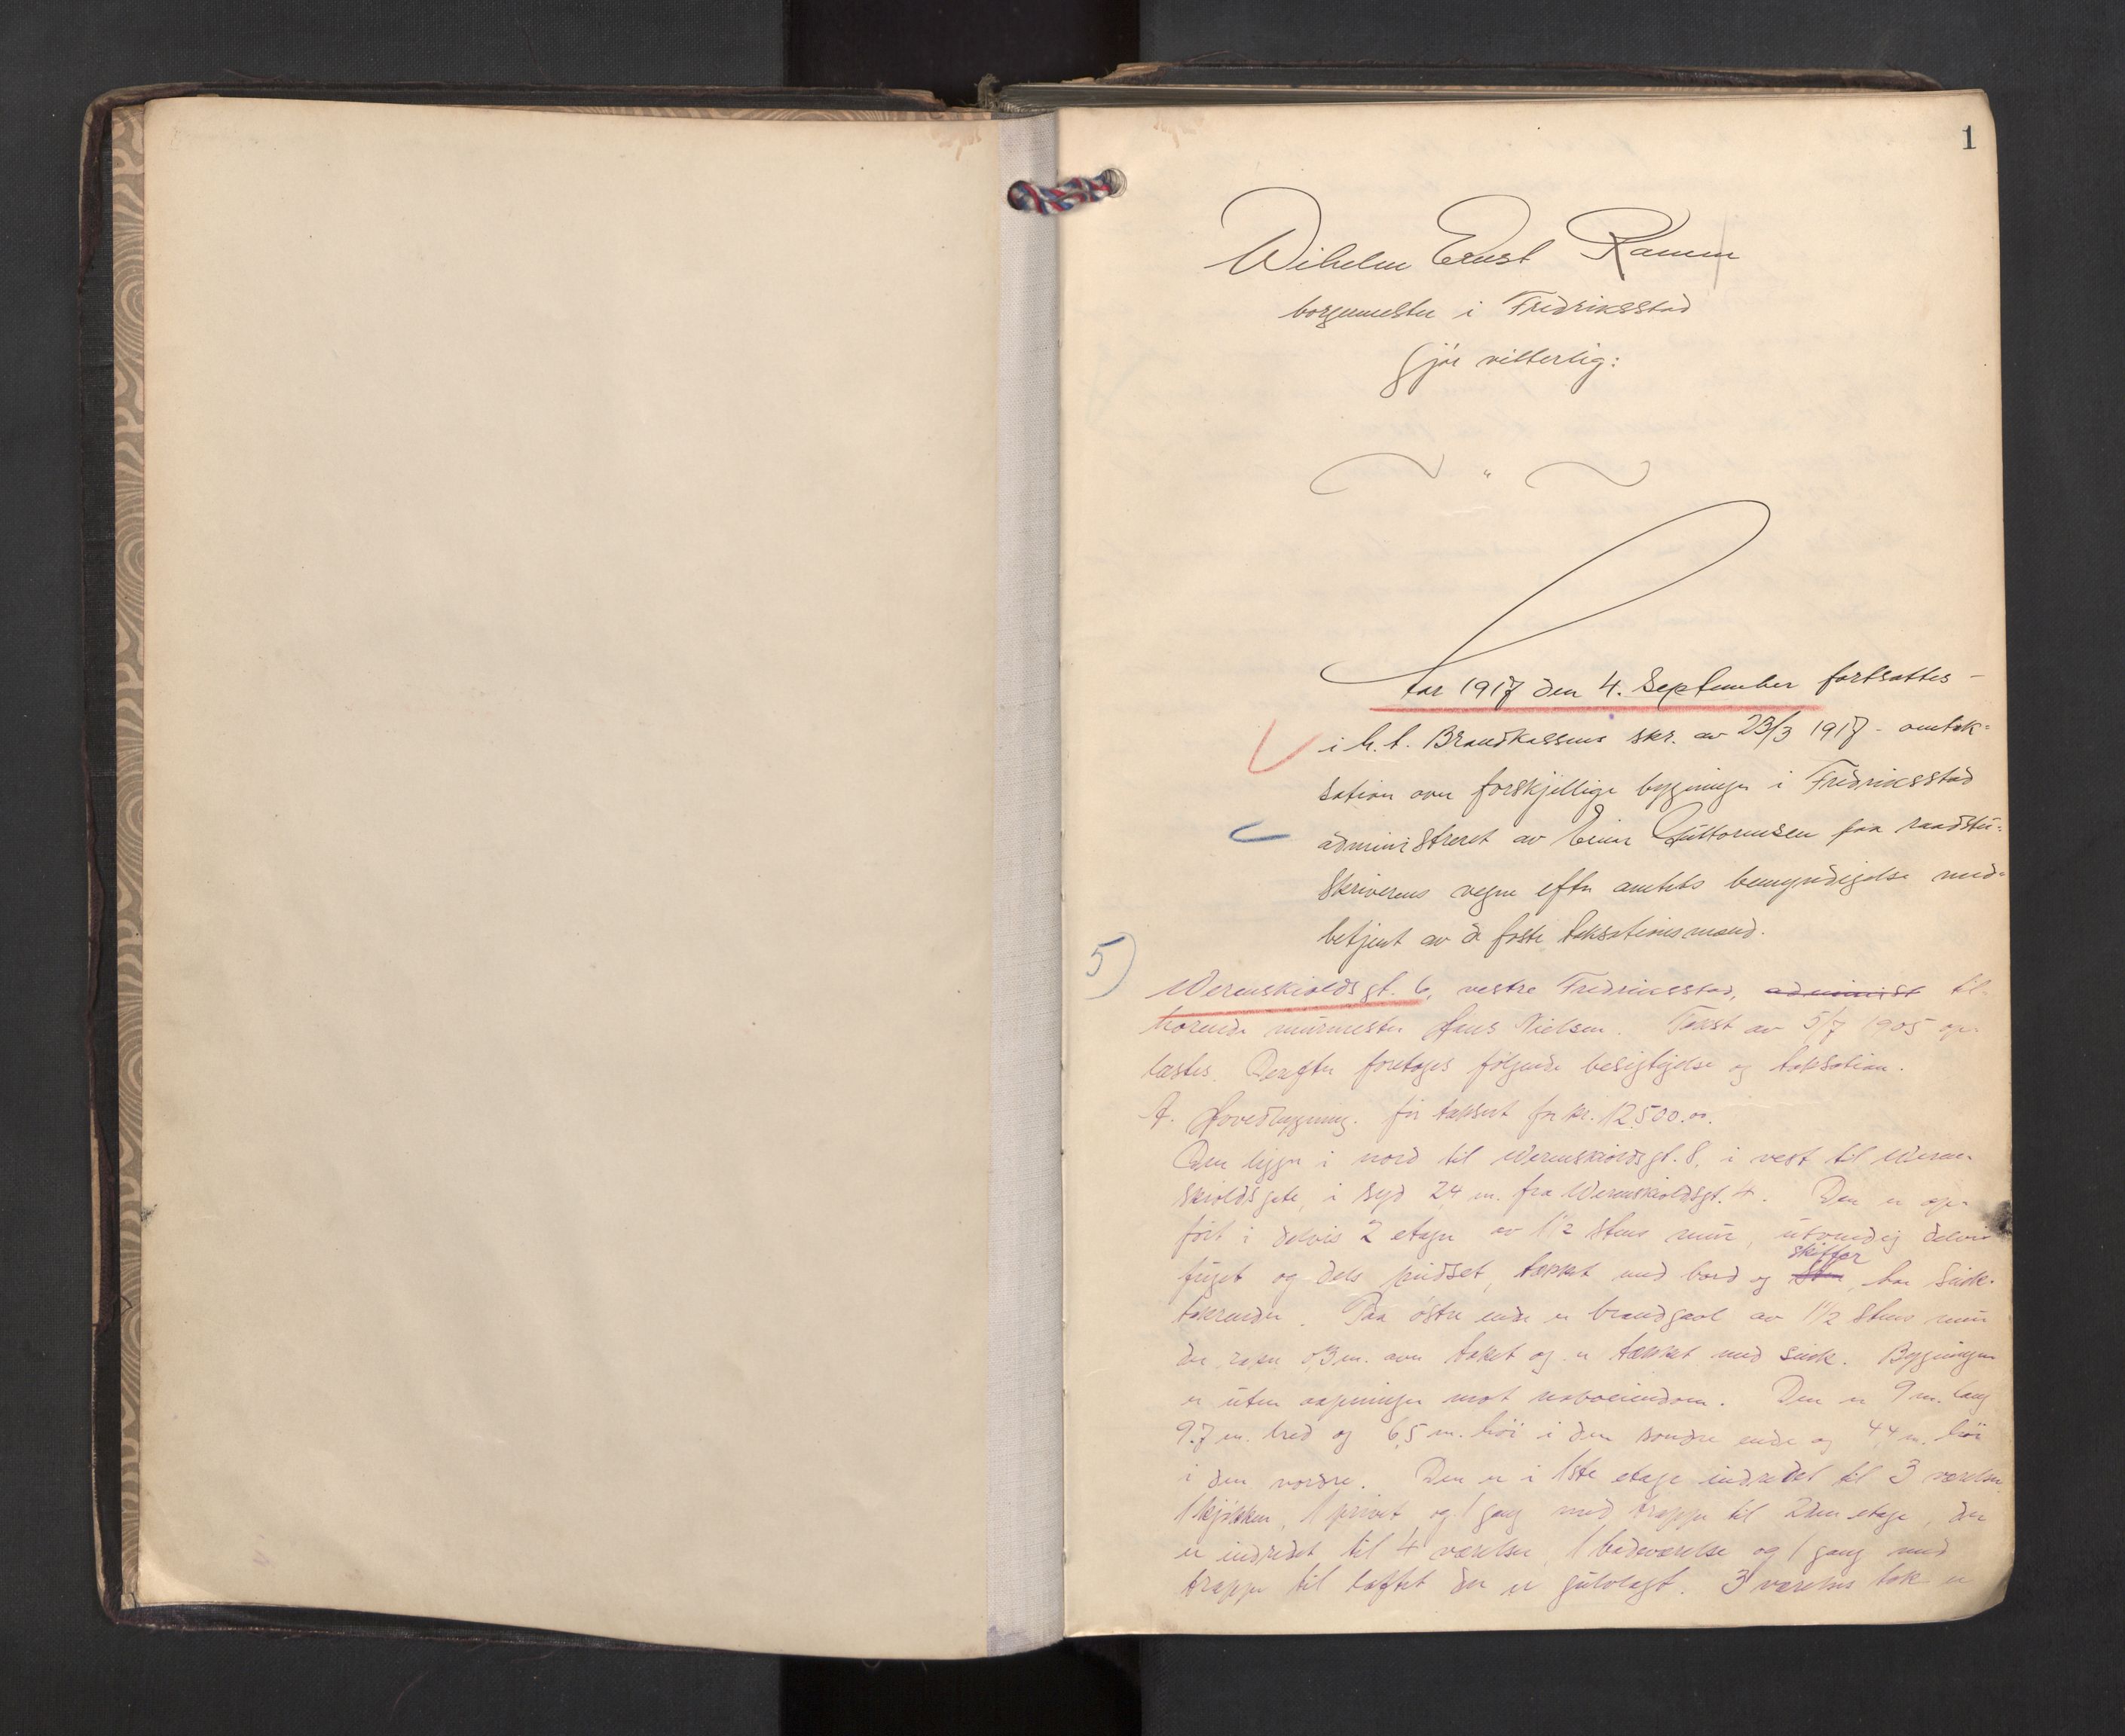 1
Wilhelm Ernst Ramm
borgermester i Fredriksstad
Gjør vitterlig:
Aar 1917 den 4. September fortsattes -
i h. t. Brandkassens skr. av 23/3 1917 - omtak=
sation over forskjellige bygninger i Fredriksstad
administreret av Einar Guttormsen paa raadstu=
skriverens vegne efter amtets bemyndigelse med=
betjent av de faste taksationsmænd.
5)
Werenskioldsgt. 6, vestre Fredriksstad, administ til
hørende murmester Hans Nielsen. Takst av 5/7 1905 op
læstes. Derefter foretoges følgende besigtigelse og taksation.
A. Hovedbygning. før taksert for kr. 12.500.00.
Den ligger i nord til Werenskioldsgt. 8, i vest til Weren
skioldsgate, i syd 24 m. fra Werenskioldsgt. 4. Den er op
ført i delvis 2 etager av 1½ stens mur, utvendig delvis
skiffer
fuget og dels pudset, tækket med bord og sten, har sink-
takrender. Paa østre ende er brandgavl av 1½ stens mur
der rager 0,3 m. over taket og er tækket med sink. Bygningen
er uten aapninger mot naboeiendom. Den er 9 m. lang
9.7 m. bred og 6,5 m. høi i den søndre ende og 4,4 m. høi
i den nordre. Den er i 1ste etage indredet til 3 værelser
1 kjøkken, 1 privet og 1 gang med trappe til 2den etage, der
er indredet til 4 værelser, 1 badeværelse og 1 gang med
trappe til loftet der er gulvlagt. 3 værelses tak er